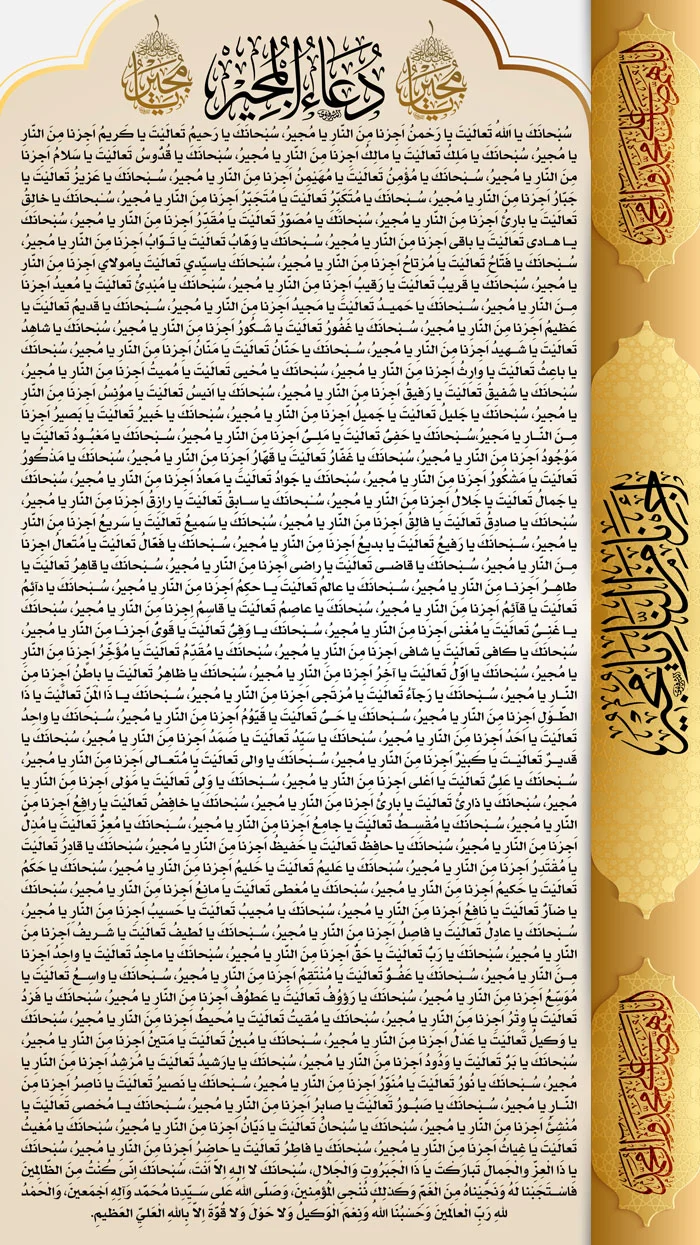 دُعَاءُ الْمُجِیْر
یا مُجیرُ
یا مُجیرُ
سُبْحانَكَ یا اَللهُ تَعالَیْتَ یا رَحْمنُ اَجِرْنا مِنَ النّارِ یا مُجیرُ، سُبْحانَكَ یا رَحیمُ تَعالَیْتَ یا كَریمُ اَجِرْنا مِنَ النّارِ
یا مُجیرُ، سُبْحانَكَ یا مَلِكُ تَعالَیْتَ یا مالِكُ اَجِرْنا مِنَ النّارِ یا مُجیر، سُبْحانَكَ یا قُدّوسُ تَعالَیْتَ یا سَلامُ اَجِرْنا
مِنَ النّارِ یا مُجیرُ، سُبْحانَكَ یا مُؤْمِنُ تَعالَیْتَ یا مُهَیْمِنُ اَجِرْنا مِنَ النّارِ یا مُجیرُ، سُبْحانَكَ یا عَزیزُ تَعالَیْتَ یا
جَبّارُ اَجِرْنا مِنَ النّارِ یا مُجیرُ، سُبْحانَكَ یا مُتَكَبِّرُ تَعالَیْتَ یا مُتَجَبِّرُ اَجِرْنا مِنَ النّارِ یا مُجیرُ، سُبْحانَكَ یا خالِقُ
تَعالَیْتَ یا بارِئُ اَجِرْنا مِنَ النّارِ یا مُجیرُ، سُبْحانَكَ یا مُصَوِّرُ تَعالَیْتَ یا مُقَدِّرُ اَجِرْنا مِنَ النّارِ یا مُجیرُ، سُبْحانَكَ
یا هادی تَعالَیْتَ یا باقی اَجِرْنا مِنَ النّارِ یا مُجیرُ، سُبْحانَكَ یا وَهّابُ تَعالَیْتَ یا تَوّابُ اَجِرْنا مِنَ النّارِ یا مُجیرُ،
سُبْحانَكَ یا فَتّاحُ تَعالَیْتَ یا مُرْتاحُ اَجِرْنا مِنَ النّارِ یا مُجیرُ، سُبْحانَكَ یاسَیِّدی تَعالَیْتَ یامَولایَ اَجِرْنا مِنَ النّارِ
یا مُجیرُ، سُبْحانَكَ یا قَریبُ تَعالَیْتَ یا رَقیبُ اَجِرْنا مِنَ النّارِ یا مُجیرُ، سُبْحانَكَ یا مُبْدِئُ تَعالَیْتَ یا مُعیدُ اَجِرْنا
مِنَ النّارِ یا مُجیرُ، سُبْحانَكَ یا حَمیدُ تَعالَیْتَ یا مَجیدُ اَجِرْنا مِنَ النّارِ یا مُجیرُ، سُبْحانَكَ یا قَدیمُ تَعالَیْتَ یا
عَظیمُ اَجِرْنا مِنَ النّارِ یا مُجیرُ، سُبْحانَكَ یا غَفُورُ تَعالَیْتَ یا شَكُورُ اَجِرْنا مِنَ النّارِ یا مُجیرُ، سُبْحانَكَ یا شاهِدُ
تَعالَیْتَ یا شَهیدُ اَجِرْنا مِنَ النّارِ یا مُجیرُ، سُبْحانَكَ یا حَنّانُ تَعالَیْتَ یا مَنّانُ اَجِرْنا مِنَ النّارِ یا مُجیرُ، سُبْحانَكَ
یا باعِثُ تَعالَیْتَ یا وارِثُ اَجِرْنا مِنَ النّارِ یا مُجیرُ، سُبْحانَكَ یا مُحْیی تَعالَیْتَ یا مُمیتُ اَجِرْنا مِنَ النّارِ یا مُجیرُ،
سُبْحانَكَ یا شَفیقُ تَعالَیْتَ یا رَفیقُ اَجِرْنا مِنَ النّارِ یا مُجیرُ، سُبْحانَكَ یا اَنیسُ تَعالَیْتَ یا مُؤنِسُ اَجِرْنا مِنَ النّارِ
یا مُجیرُ، سُبْحانَكَ یا جَلیلُ تَعالَیْتَ یا جَمیلُ اَجِرْنا مِنَ النّارِ یا مُجیرُ، سُبْحانَكَ یا خَبیرُ تَعالَیْتَ یا بَصیرُ اَجِرْنا
مِنَ النّارِ یا مُجیرُ،سُبْحانَكَ یا حَفِیُّ تَعالَیْتَ یا مَلِیُّ اَجِرْنا مِنَ النّارِ یا مُجیرُ، سُبْحانَكَ یا مَعْبُودُ تَعالَیْتَ یا
مَوْجُودُ اَجِرْنا مِنَ النّارِ یا مُجیرُ، سُبْحانَكَ یا غَفّارُ تَعالَیْتَ یا قَهّارُ اَجِرْنا مِنَ النّارِ یا مُجیرُ، سُبْحانَكَ یا مَذْكُورُ
تَعالَیْتَ یا مَشْكُورُ اَجِرْنا مِنَ النّارِ یا مُجیرُ، سُبْحانَكَ یا جَوادُ تَعالَیْتَ یا مَعاذُ اَجِرْنا مِنَ النّارِ یا مُجیرُ، سُبْحانَكَ
یا جَمالُ تَعالَیْتَ یا جَلالُ اَجِرْنا مِنَ النّارِ یا مُجیرُ، سُبْحانَكَ یا سابِقُ تَعالَیْتَ یا رازِقُ اَجِرْنا مِنَ النّارِ یا مُجیرُ،
سُبْحانَكَ یا صادِقُ تَعالَیْتَ یا فالِقُ اَجِرْنا مِنَ النّارِ یا مُجیرُ، سُبْحانَكَ یا سَمیعُ تَعالَیْتَ یا سَریعُ اَجِرْنا مِنَ النّارِ
یا مُجیرُ، سُبْحانَكَ یا رَفیعُ تَعالَیْتَ یا بَدیعُ اَجِرْنا مِنَ النّارِ یا مُجیرُ، سُبْحانَكَ یا فَعّالُ تَعالَیْتَ یا مُتَعالُ اَجِرْنا
مِنَ النّارِ یا مُجیرُ، سُبْحانَكَ یا قاضی تَعالَیْتَ یا راضی اَجِرْنا مِنَ النّارِ یا مُجیرُ، سُبْحانَكَ یا قاهِرُ تَعالَیْتَ یا
طاهِرُ اَجِرْنا مِنَ النّارِ یا مُجیرُ، سُبْحانَكَ یا عالِمُ تَعالَیْتَ یا حكِمُ اَجِرْنا مِنَ النّارِ یا مُجیرُ، سُبْحانَكَ یا دآئِمُ
تَعالَیْتَ یا قآئِمُ اَجِرْنا مِنَ النّارِ یا مُجیرُ، سُبْحانَكَ یا عاصِمُ تَعالَیْتَ یا قاسِمُ اَجِرْنا مِنَ النّارِ یا مُجیرُ، سُبْحانَكَ
یا غَنِیُّ تَعالَیْتَ یا مُغْنی اَجِرْنا مِنَ النّارِ یا مُجیرُ، سُبْحانَكَ یا وَفِیُّ تَعالَیْتَ یا قَوِیُّ اَجِرْنا مِنَ النّارِ یا مُجیرُ،
سُبْحانَكَ یا كافی تَعالَیْتَ یا شافی اَجِرْنا مِنَ النّارِ یا مُجیرُ، سُبْحانَكَ یا مُقَدِّمُ تَعالَیْتَ یا مُؤَخِّرُ اَجِرْنا مِنَ النّارِ
یا مُجیرُ، سُبْحانَكَ یا اَوَّلُ تَعالَیْتَ یا آخِرُ اَجِرْنا مِنَ النّارِ یا مُجیرُ، سُبْحانَكَ یا ظاهِرُ تَعالَیْتَ یا باطِنُ اَجِرْنا مِنَ
النّارِ یا مُجیرُ، سُبْحانَكَ یا رَجآءُ تَعالَیْتَ یا مُرْتَجی اَجِرْنا مِنَ النّارِ یا مُجیرُ، سُبْحانَكَ یا ذَا الْمَنِّ تَعالَیْتَ یا ذَا
الطَّوْلِ اَجِرْنا مِنَ النّارِ یا مُجیرُ، سُبْحانَكَ یا حَیُّ تَعالَیْتَ یا قَیُّوْمُ اَجِرْنا مِنَ النّارِ یا مُجیرُ، سُبْحانَكَ یا واحِدُ
تَعالَیْتَ یا اَحَدُ اَجِرْنا مِنَ النّارِ یا مُجیرُ، سُبْحانَكَ یا سَیِّدُ تَعالَیْتَ یا صَمَدُ اَجِرْنا مِنَ النّارِ یا مُجیرُ، سُبْحانَكَ یا
قَدیرُ تَعالَیْتَ یا كَبیْرُ اَجِرْنا مِنَ النّارِ یا مُجیرُ، سُبْحانَكَ یا والی تَعالَیْتَ یا مُتَعالی اَجِرْنا مِنَ النّارِ یا مُجیرُ،
سُبْحانَكَ یا عَلِیُّ تَعالَیْتَ یا اَعْلی اَجِرْنا مِنَ النّارِ یا مُجیرُ، سُبْحانَكَ یا وَلِیُّ تَعالَیْتَ یا مَوْلی اَجِرْنا مِنَ النّارِ یا
مُجیرُ، سُبْحانَكَ یا ذارِئُ تَعالَیْتَ یا بارِئُ اَجِرْنا مِنَ النّارِ یا مُجیرُ، سُبْحانَكَ یا خافِضُ تَعالَیْتَ یا رافِعُ اَجِرْنا مِنَ
النّارِ یا مُجیرُ، سُبْحانَكَ یا مُقْسِطُ تَعالَیْتَ یا جامِعُ اَجِرْنا مِنَ النّارِ یا مُجیرُ، سُبْحانَكَ یا مُعِزُّ تَعالَیْتَ یا مُذِلُّ
اَجِرْنا مِنَ النّارِ یا مُجیرُ، سُبْحانَكَ یا حافِظُ تَعالَیْتَ یا حَفیظُ اَجِرْنا مِنَ النّارِ یا مُجیرُ، سُبْحانَكَ یا قادِرُ تَعالَیْتَ
یا مُقْتَدِرُ اَجِرْنا مِنَ النّارِ یا مُجیرُ، سُبْحانَكَ یا عَلیمُ تَعالَیْتَ یا حَلیمُ اَجِرْنا مِنَ النّارِ یا مُجیرُ، سُبْحانَكَ یا حَكَمُ
تَعالَیْتَ یا حَكیمُ اَجِرْنا مِنَ النّارِ یا مُجیرُ، سُبْحانَكَ یا مُعْطی تَعالَیْتَ یا مانِعُ اَجِرْنا مِنَ النّارِ یا مُجیرُ، سُبْحانَكَ
یا ضآرُّ تَعالَیْتَ یا نافِعُ اَجِرْنا مِنَ النّارِ یا مُجیرُ، سُبْحانَكَ یا مُجیبُ تَعالَیْتَ یا حَسیبُ اَجِرْنا مِنَ النّارِ یا مُجیر،
سُبْحانَكَ یا عادِلُ تَعالَیْتَ یا فاصِلُ اَجِرْنا مِنَ النّارِ یا مُجیرُ، سُبْحانَكَ یا لَطیفُ تَعالَیْتَ یا شَریفُ اَجِرْنا مِنَ
النّارِ یا مُجیرُ، سُبْحانَكَ یا رَبُّ تَعالَیْتَ یا حَقُّ اَجِرْنا مِنَ النّارِ یا مُجیرُ، سُبْحانَكَ یا ماجِدُ تَعالَیْتَ یا واحِدُ اَجِرْنا
مِنَ النّارِ یا مُجیرُ، سُبْحانَكَ یا عَفُوُّ تَعالَیْتَ یا مُنْتَقِمُ اَجِرْنا مِنَ النّارِ یا مُجیرُ، سُبْحانَكَ یا واسِعُ تَعالَیْتَ یا
مُوَسِّعُ اَجِرْنا مِنَ النّارِ یا مُجیرُ، سُبْحانَكَ یا رَؤوُفُ تَعالَیْتَ یا عَطوُفُ اَجِرْنا مِنَ النّارِ یا مُجیرُ، سُبْحانَكَ یا فَرْدُ
تَعالَیْتَ یا وِتْرُ اَجِرْنا مِنَ النّارِ یا مُجیرُ، سُبْحانَكَ یا مُقیتُ تَعالَیْتَ یا مُحیطُ اَجِرْنا مِنَ النّارِ یا مُجیرُ، سُبْحانَكَ
یا وَكیلُ تَعالَیْتَ یا عَدْلُ اَجِرْنا مِنَ النّارِ یا مُجیرُ، سُبْحانَكَ یا مُبینُ تَعالَیْتَ یا مَتینُ اَجِرْنا مِنَ النّارِ یا مُجیرُ،
سُبْحانَكَ یا بَرُّ تَعالَیْتَ یا وَدُودُ اَجِرْنا مِنَ النّارِ یا مُجیرُ، سُبْحانَكَ یارَشیدُ تَعالَیْتَ یا مُرْشِدُ اَجِرْنا مِنَ النّارِ یا
مُجیرُ، سُبْحانَكَ یا نُورُ تَعالَیْتَ یا مُنَوِّرُ اَجِرْنا مِنَ النّارِ یا مُجیرُ، سُبْحانَكَ یا نَصیرُ تَعالَیْتَ یا ناصِرُ اَجِرْنا مِنَ
النّارِ یا مُجیرُ، سُبْحانَكَ یا صَبُورُ تَعالَیْتَ یا صابِرُ اَجِرْنا مِنَ النّارِ یا مُجیرُ، سُبْحانَكَ یا مُحْصی تَعالَیْتَ یا
مُنْشِئُ اَجِرْنا مِنَ النّارِ یا مُجیرُ، سُبْحانَكَ یا سُبْحانُ تَعالَیْتَ یا دَیّانُ اَجِرْنا مِنَ النّارِ یا مُجیرُ، سُبْحانَكَ یا مُغیثُ
تَعالَیْتَ یا غِیاثُ اَجِرْنا مِنَ النّارِ یا مُجیرُ، سُبْحانَكَ یا فاطِرُ تَعالَیْتَ یا حاضِرُ اَجِرْنا مِنَ النّارِ یا مُجیرُ، سُبْحانَكَ
یا ذَا الْعِزِّ وَالْجَمالِ تَبارَكْتَ یا ذَا الْجَبَرُوتِ وَالْجَلالِ، سُبْحانَكَ لا اِلهَ اِلاّ اَنْتَ، سُبْحانَكَ اِنّی كُنْتُ مِنَ الظّالِمینَ
فَاسْتَجَبْنا لَهُ وَنَجَّیْناهُ مِنَ الْغَمِّ وَكَذلِكَ نُنْجِی الْمُؤْمِنینَ، وَصَلَّی اللهُ عَلی سَیِّدِنا مُحَمَّدٍ وَآلِهِ اَجْمَعینَ، وَالْحَمْدُ
للهِ رَبِّ الْعالَمینَ وَحَسْبُنَا اللهُ وَنِعْمَ الْوَكیلُ وَلا حَوْلَ وَلا قُوَّةَ اِلاّ بِاللهِ الْعَلِیِّ الْعَظیمِ.
اللهم صل علی محمد وآل محمد
اجرنا من النار یا مجیر
اللهم صل علی محمد وآل محمد